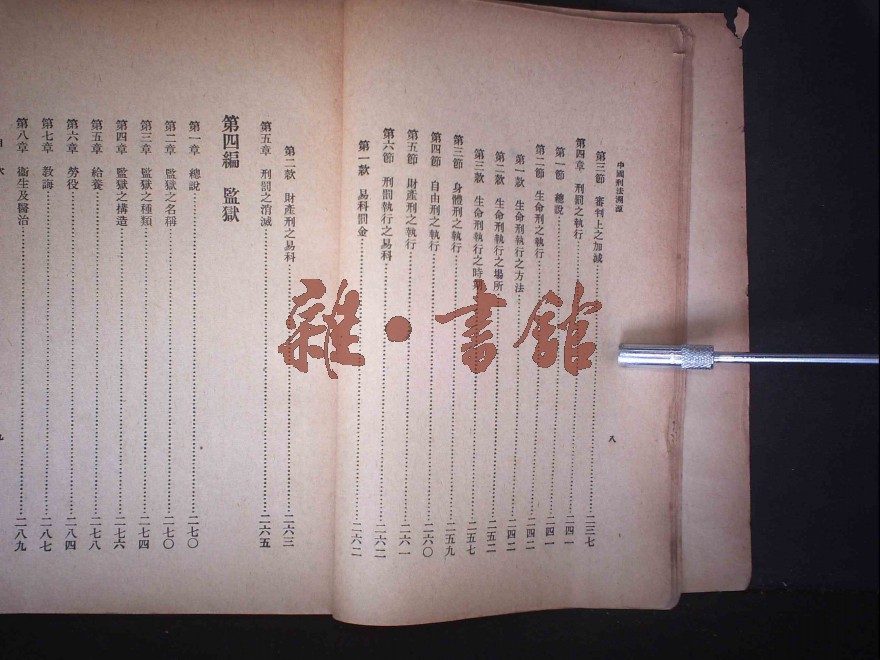 中國刑法溯源
第三節 審判上之加減………二三七
第四章 刑罰之執行………二四一
第一節 總說………二四一
第二節 生命刑之執行………二四二
第一款 生命刑執行之方法………二四二
第二款 生命刑執行之場所………二五二
第三款 生命刑執行之時期………二五七
第三節 身體刑之執行………二五九
第四節 自由刑之執行………二六〇
第五節 財產刑之執行………二六一
第六節 刑罰執行之易科………二六二
第一款 易科罰金………二六二
八
第二款 財產刑之易科………二六三
第五章 刑罰之消滅………二六五
第四編 監獄
第一章 總說………二七〇
第二章 監獄之名稱………二七〇
第三章 監獄之種類………二七四
第四章 監獄之構造………二七六
第五章 給養………二七八
第六章 勞役………二八四
第七章 教誨………二八七
第八章 衞生及醫治………二八九
雜·書館